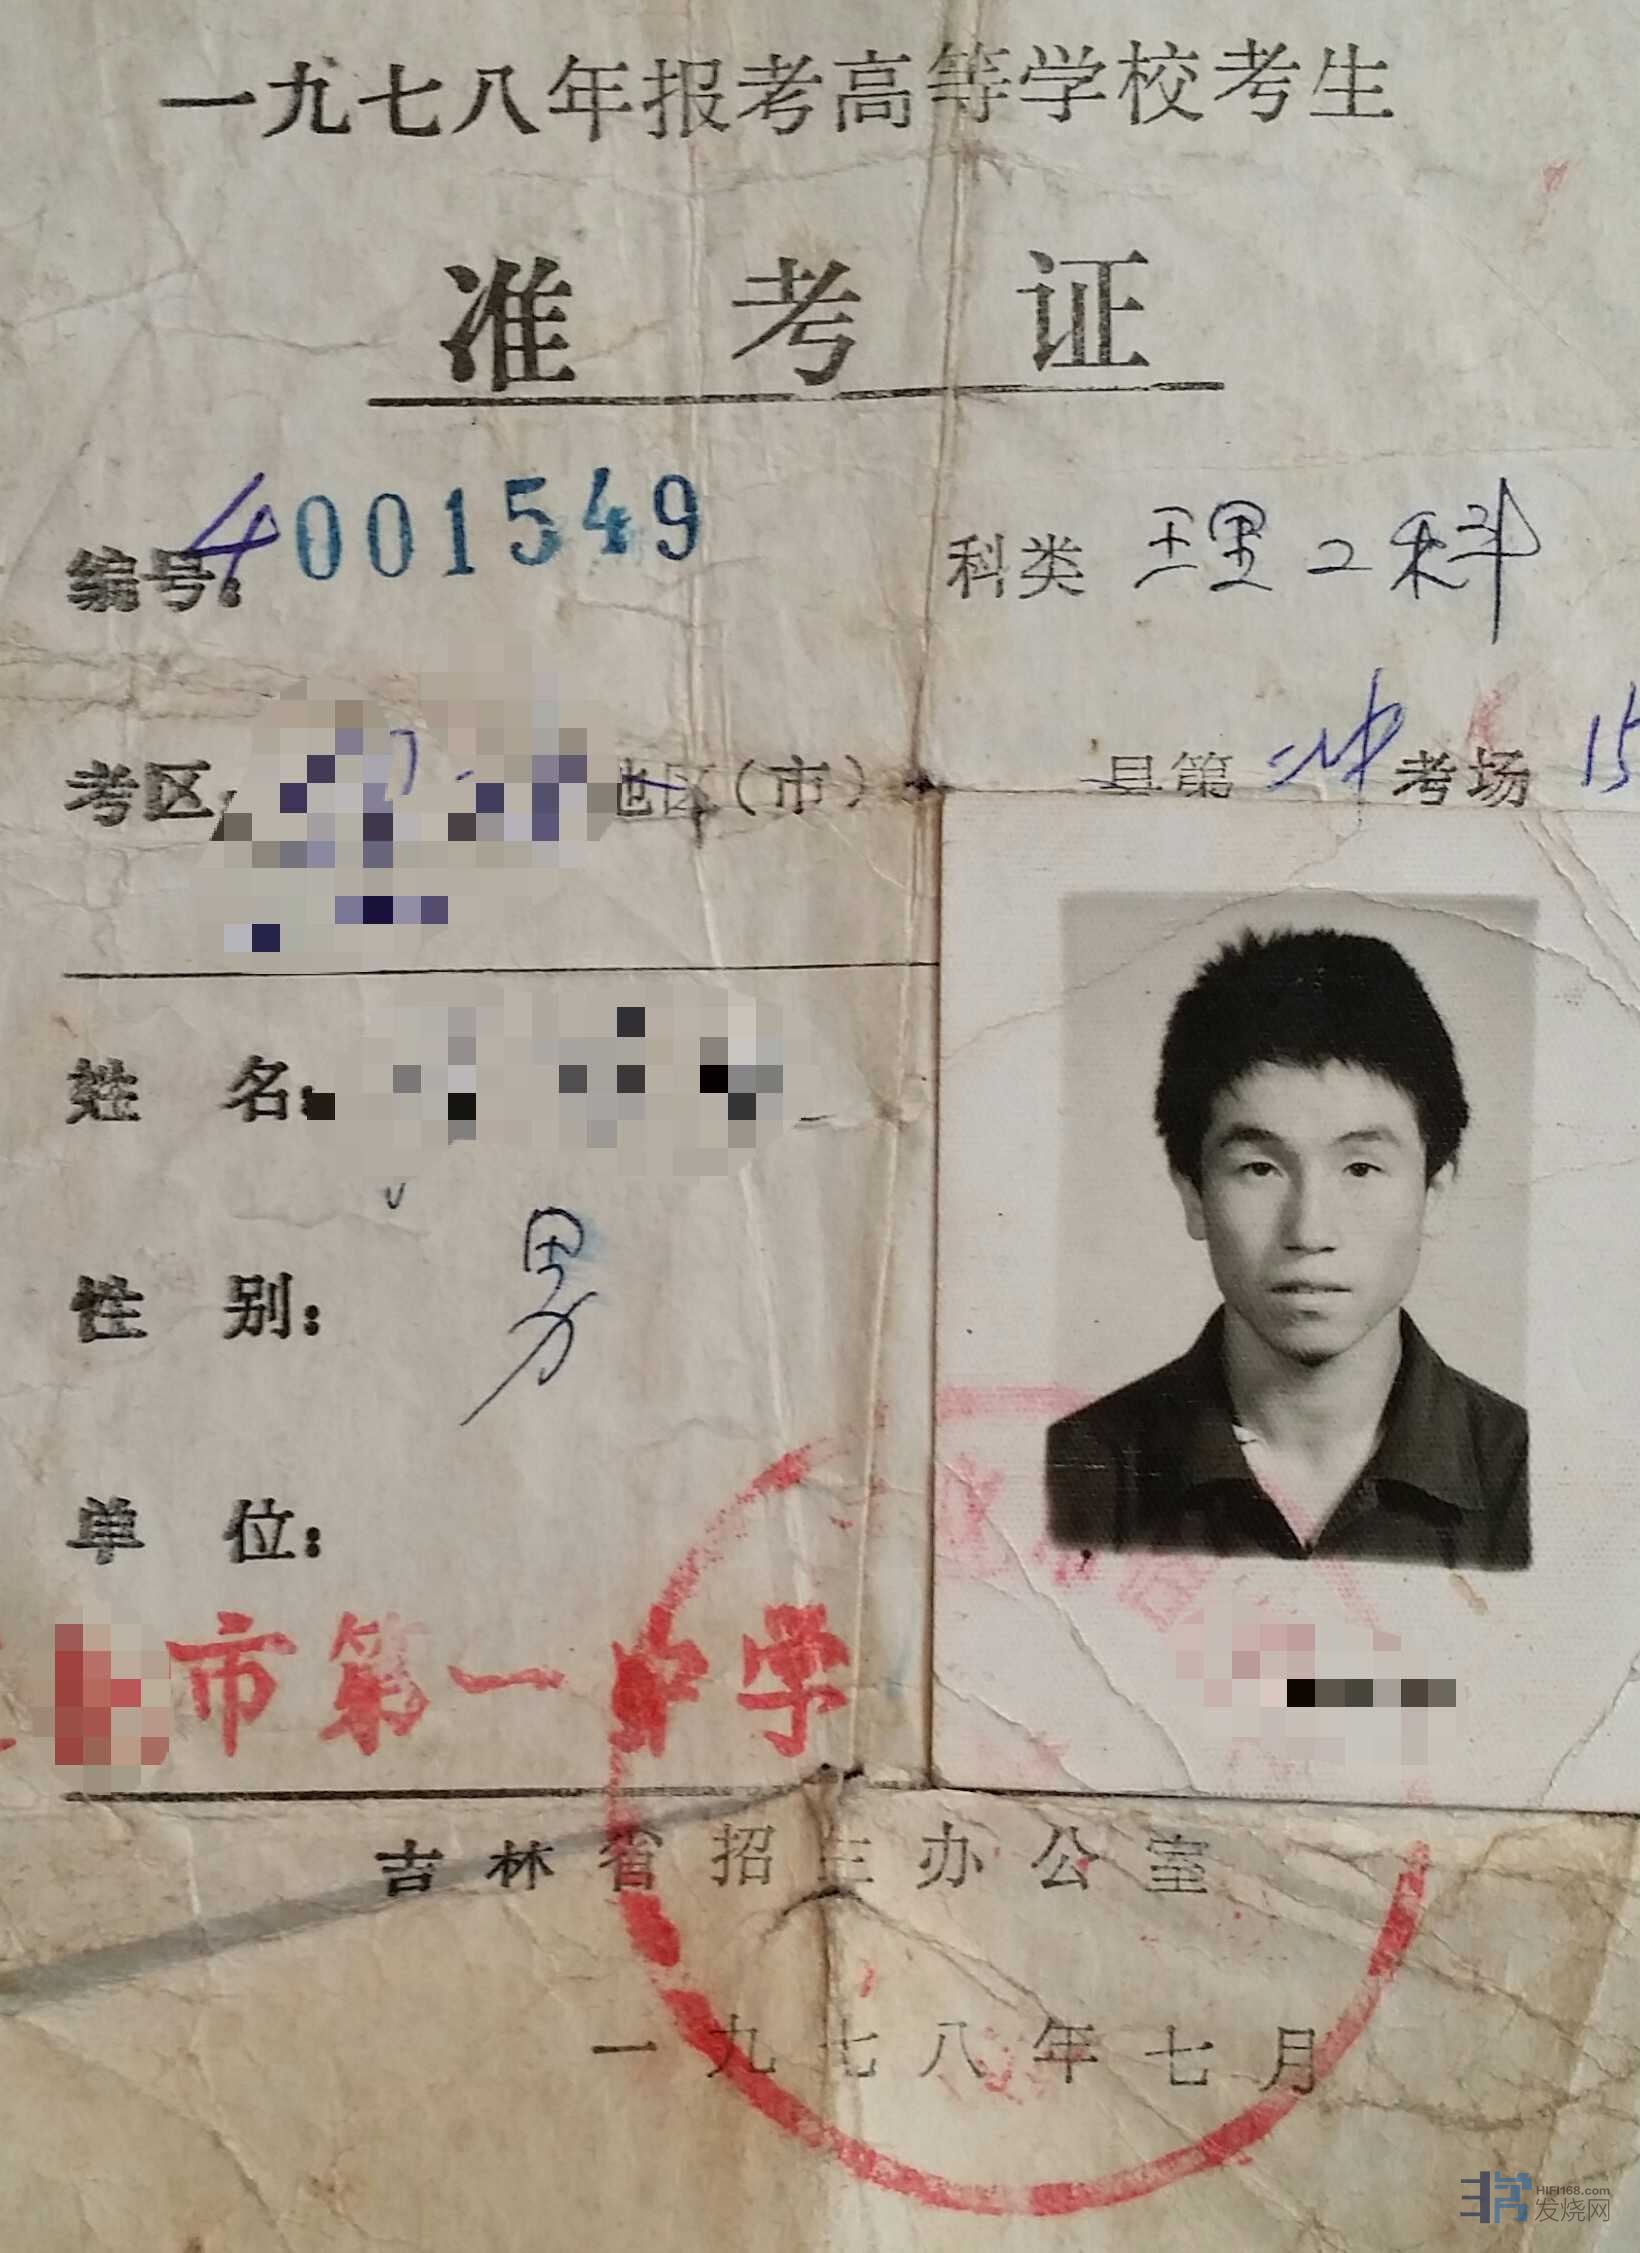 一九七八年报考高等学校考生
准考证
编号：4001549 科类 理工科
考区 地区（市） 县第 二中 考场 15
姓名：
性别：男
单位：
市第一中学
吉林省招生办公室
一九七八年七月
HIFI168.com
发烧网